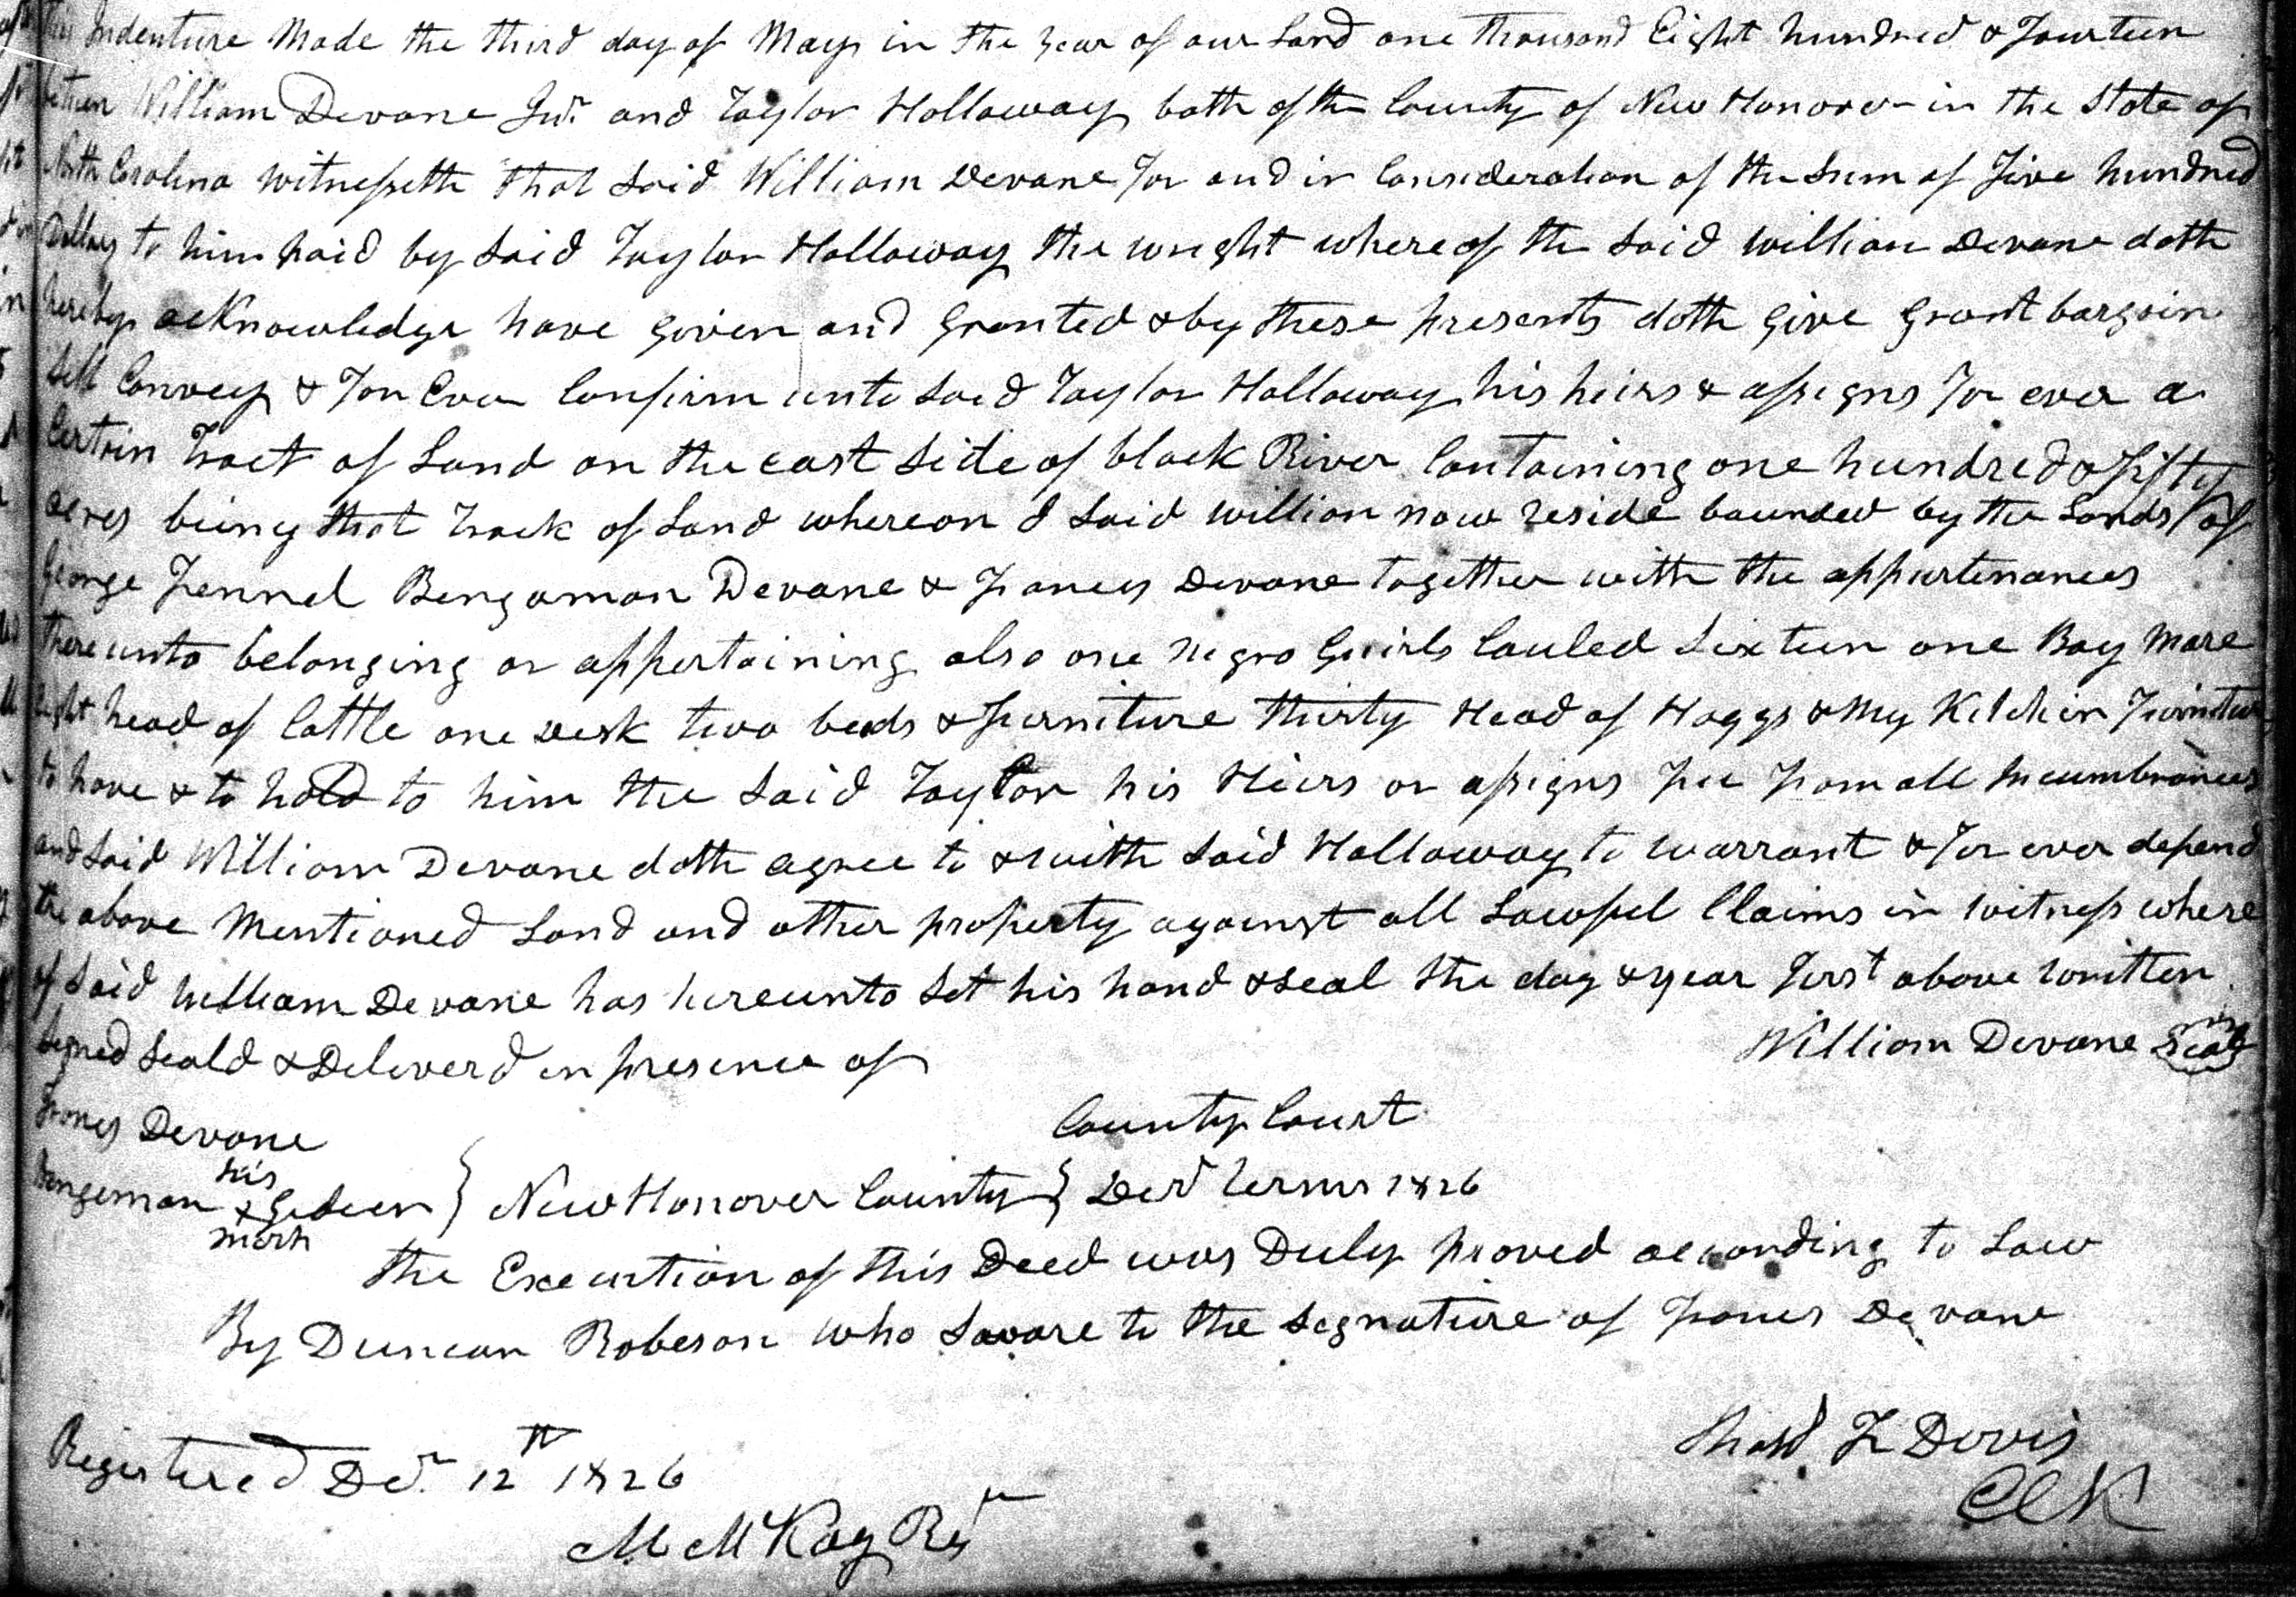 This Indenture Made the third day of May in the year of our Lord one thousand Eight hundred & Fourteen
between William Devane Junr and Taylor Holloway both of the County of New Hanover in the State of
North Carolina witnesseth that said William Devane for and in Consideration of the Sum of Five hundred
Dollars to him paid by said Taylor Holloway the wright where of the said William Devane doth
hereby acknowledge have given and granted & by these presents doth give grant bargain
Sell Convey & for Ever Confirm unto said Taylor Holloway his heirs & assigns for ever a
Certain Tract of Land on the east side of black River Containing one hundred & fifty
acres being that track of Land whereon I said William now reside bounded by the Lands of
George Fennel Bengaman Devane & Frances Devane together with the appurtenances
there unto belonging or appertaining also one negro Guirls Cauled Sixteen one Bay Mare
Eight head of Cattle one desk two beads & furniture thirty Head of Hoggs & My Kitchin Furnitur
to have & to hold to him the said Taylor his Heirs or assigns free from all Incumbrances
and said William Devane doth agree to & with said Holloway to warrant & for ever defend
the above Mentioned Land and other property against all Lawful Claims in witness where
of said William Devane has hereunto set his hand & seal the day & year first above written
Signed Seald & Deliverd in presence of William Devane Seal
Frances Devane County Court
Bengeman his x mark } New Hanover County } Decr Term 1826
the Execution of this Deed was Duly proved according to Law
By Duncan Robeson who Swore to the Signature of Frances Devane
Registered Der. 12th 1826 Thos. F Davis
M McKay Regr ClK